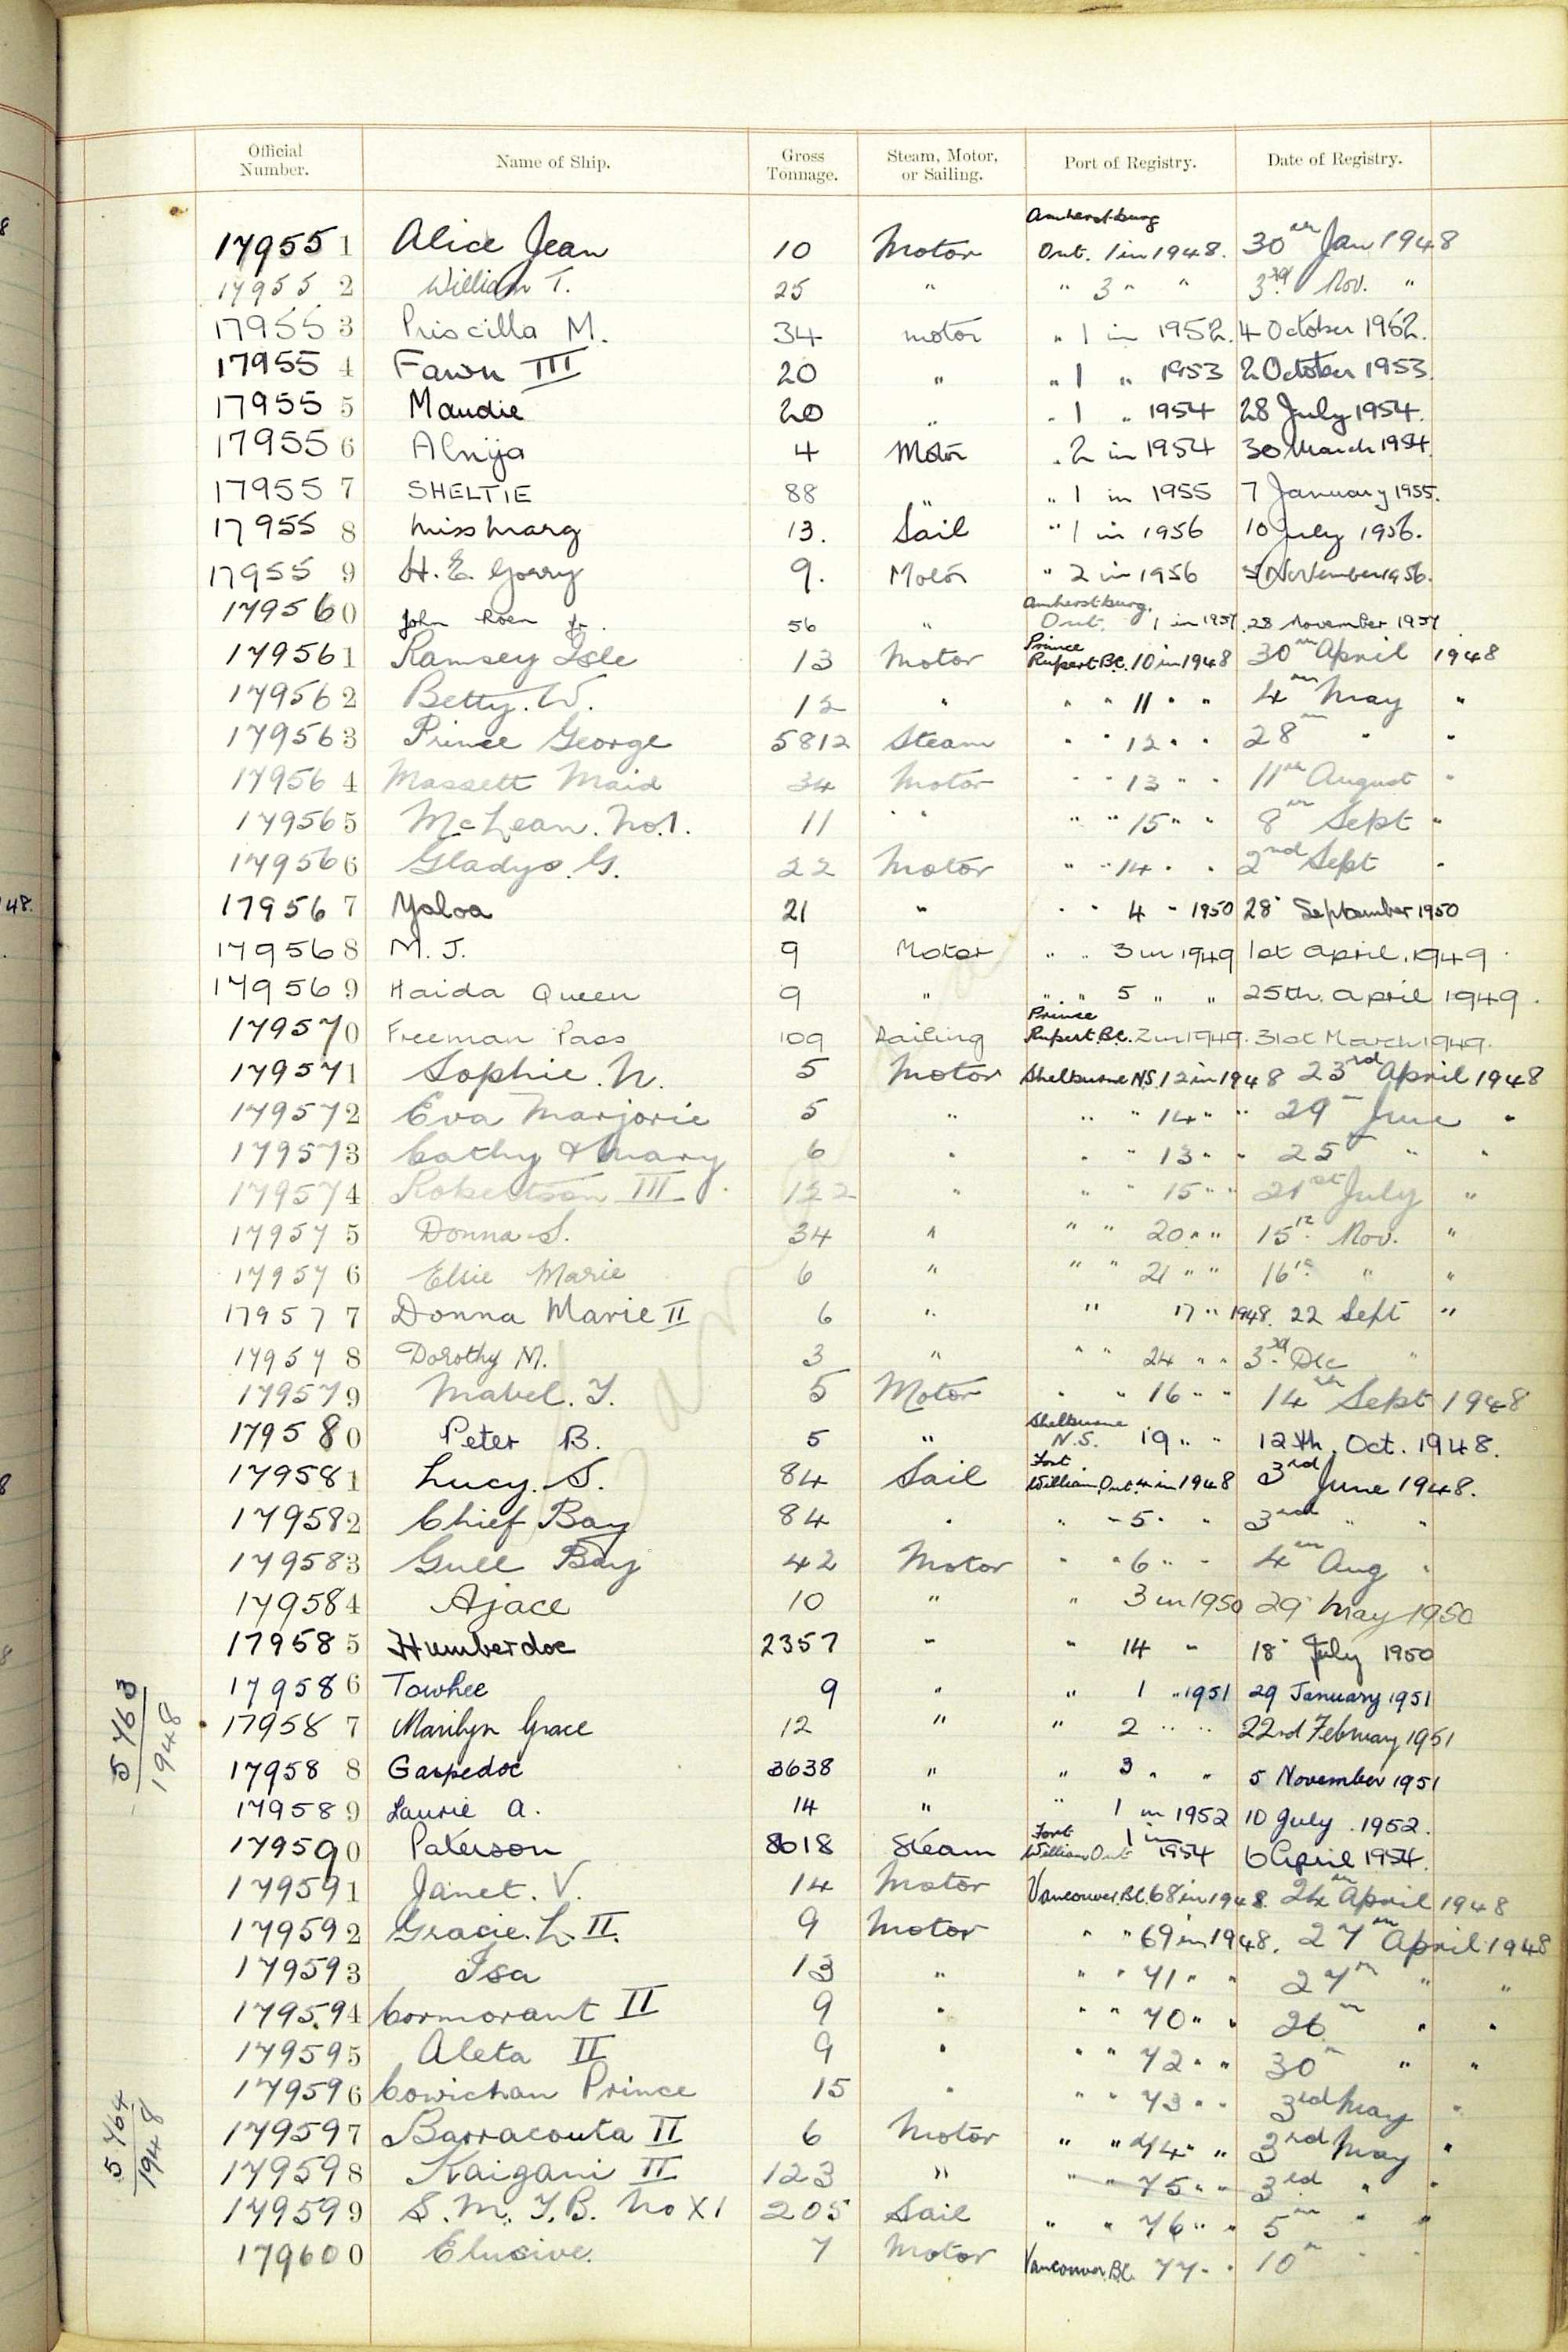 Official Number. Name of Ship. Gross Tonnage. Steam, Motor, or Sailing. Port of Registry. Date of Registry.
179551 Alice Jean 10 Motor Amherstburg Ont. 1 in 1948. 30th Jan 1948
179552 William T. 25 " " 3 " " 3rd Nov. "
179553 Priscilla M. 34 motor " 1 in 1952. 4 October 1952.
179554 Fawn III 20 " " 1 " 1953 2 October 1953.
179555 Maudie 20 " " 1 " 1954 28 July 1954.
179556 Alnija 4 Motor " 2 in 1954 30 March 1954.
179557 SHELTIE 88 " " 1 in 1955 7 January 1955.
179558 Miss Marg 13. Sail " 1 in 1956 10 July 1956.
179559 H. E. Gorry 9. Motor " 2 in 1956 November 1956.
179560 John Roen Jr. 56 " Amherstburg, Ont. 1 in 1957. 28 November 1957
179561 Ramsey Isle 13 Motor Prince Rupert B.C. 10 in 1948 30th April 1948
179562 Betty. W. 12 " " " 11 " " 4th May "
179563 Prince George 5812 Steam " " 12 " " 28th " "
179564 Massett Maid 34 Motor " " 13 " " 11th August "
179565 McLean. No.1. 11 " " " 15 " " 8th Sept "
179566 Gladys. G. 22 Motor " " 14 " " 2nd Sept "
179567 Yaloa 21 " " " 4 " 1950 28" September 1950
179568 M. J. 9 Motor " " 3 in 1949 1st April. 1949.
179569 Haida Queen 9 " " " 5 " " 25th. April 1949.
179570 Freeman Pass 109 Sailing Prince Rupert B.C. 2 in 1949. 31st March 1949.
179571 Sophie. N. 5 Motor Shelburne N.S. 12 in 1948 23rd April 1948
179572 Eva Marjorie 5 " " " 14 " " 29th June "
179573 Cathy & Mary 6 " " " 13 " " 25th " "
179574 Robertson III 122 " " " 15 " " 21st July "
179575 Donna S. 34 " " " 20 " " 15th Nov. "
179576 Elsie Marie 6 " " " 21 " " 16th " "
179577 Donna Marie II 6 " " 17 " 1948. 22 Sept "
179578 Dorothy M. 3 " " " 24 " " 3rd Dec "
179579 Mabel. T. 5 Motor " " 16 " " 14th Sept 1948
179580 Peter B. 5 " Shelburne N.S. 19 " " 12th. Oct. 1948.
179581 Lucy. S. 84 Sail Fort William, Ont. 4 in 1948 3rd June 1948.
179582 Chief Bay 84 " " " 5 " " 3rd " "
179583 Gull Bay 42 Motor " " 6 " " 4th Aug "
179584 Ajace 10 " " 3 in 1950 29" May 1950
179585 Humberdoc 2357 " " 14 " 18" July 1950
179586 Towhee 9 " " 1 " 1951 29 January 1951
5763 1948
179587 Marilyn Grace 12 " " 2 " " 22nd February 1951
179588 Gaspedoc 3638 " " 3 " " 5 November 1951
179589 Laurie A. 14 " " 1 in 1952 10 July. 1952.
179590 Paterson 8618 Steam Fort William Ont 1 in 1954 6 April 1954.
179591 Janet. V. 14 Motor Vancouver. B.C. 68 in 1948. 24th April 1948
179592 Gracie. L. II. 9 Motor " " 69 in 1948. 27th April 1948
179593 Isa 13 " " " 71 " " 27th " "
179594 Cormorant II 9 " " " 70 " " 26th " "
179595 Aleta II 9 " " " 72 " " 30th " "
179596 Cowichan Prince 15 " " " 73 " " 3rd May "
5764 1948
179597 Barracouta II 6 Motor " " 74 " " 3rd May "
179598 Kaigani II 123 " " " 75 " " 3rd " "
179599 S. M. T. B. No XI 205 Sail " " 76 " " 5th " "
179600 Elusive. 7 Motor Vancouver. B.C. 77 " " 10th " "